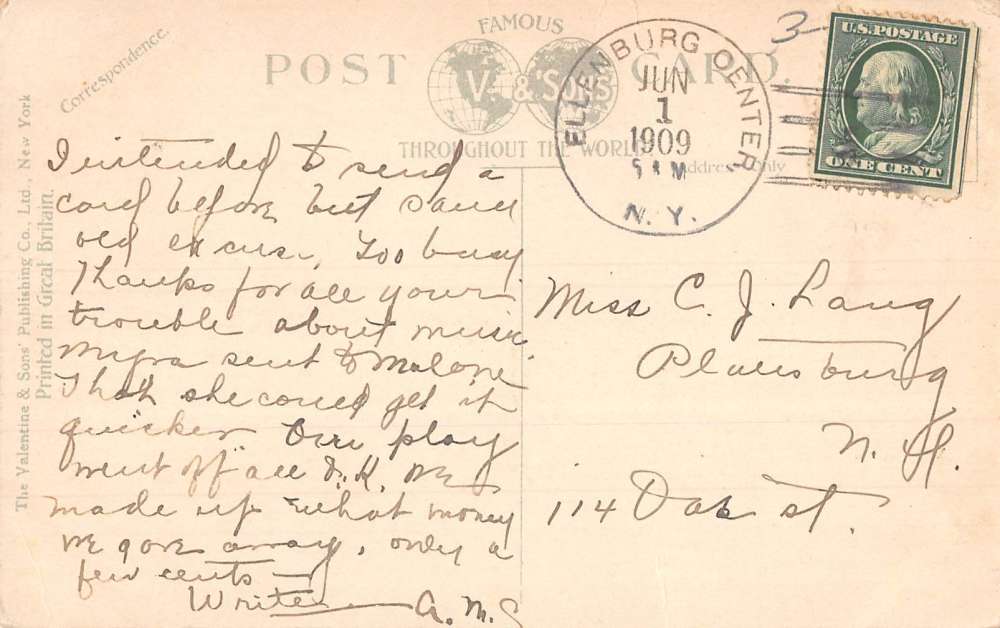 Correspondence.
FAMOUS
POST CARD.
V. & SONS
THROUGHOUT THE WORLD.
Address Only
The Valentine & Sons' Publishing Co., Ltd., New York
Printed in Great Britain.
ELLENBURG CENTER
JUN
1
1909
N. Y.
3
U.S. POSTAGE
ONE CENT
I intended to send a
card before but same
old excuse, too busy
Thanks for all your
trouble about music.
Myra sent to Malone
That she could get it
quicker. Our play
went off all O.K. we
made up what money
we gave away, only a
few cents —
Write A. M. C
Miss C. J. Lang
Plattsburg
N. Y.
114 Oak st.